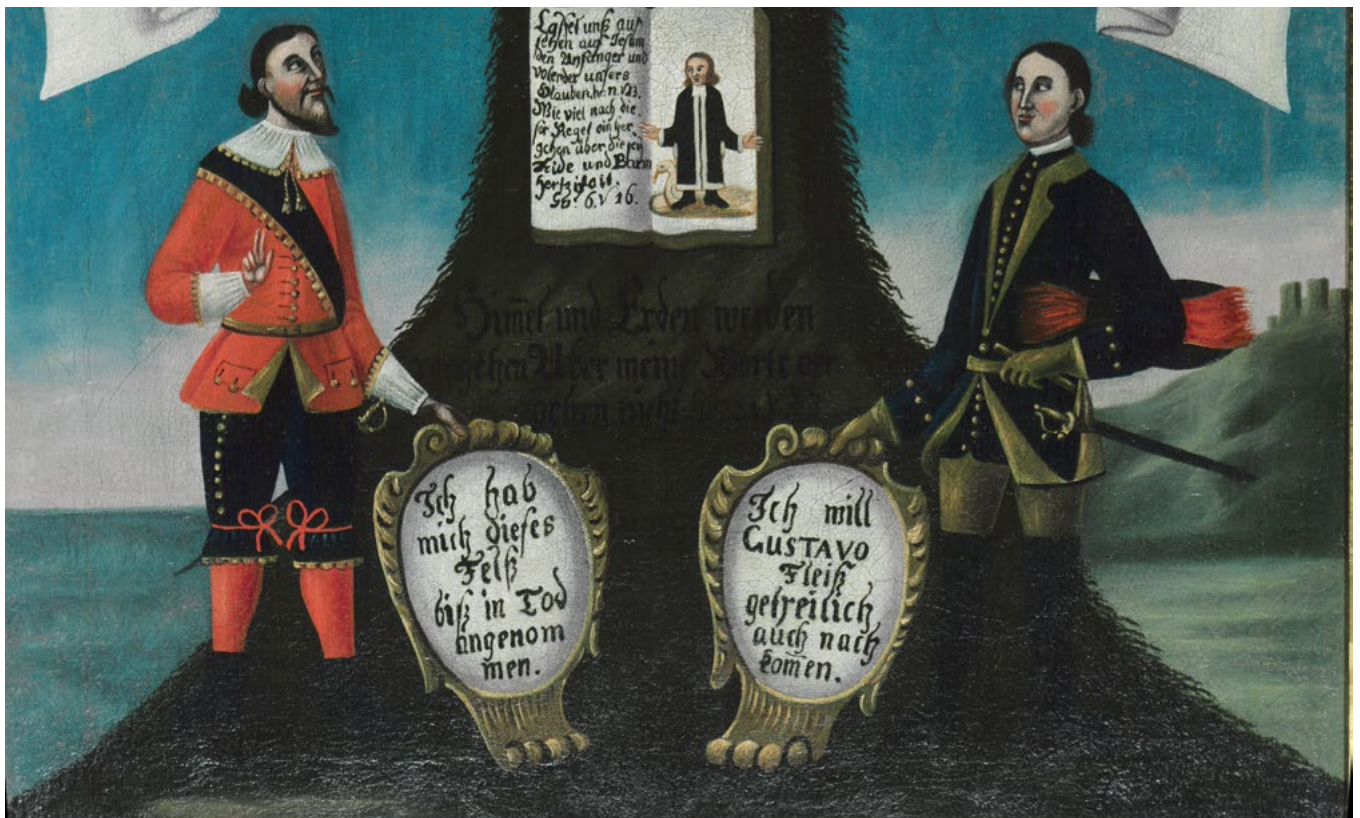 Lasset unß auf
sehen auf Jesum
den Anfänger und
Volender unsers
Glauben. hr. n. v3.
Wie viel nach die
ser Regel ein her
gehen über die sey
Fride und Barm
hertzikait.
Ga: 6. V 16.
Him̄el und Erden werden
vergehen Aber meine Worte ver
gehen nicht
Ich hab
mich dieses
Felß
biß in Tod
angenom
men.
Ich will
GUSTAVO
Fleiß
getreilich
auch nach
kom̄en.